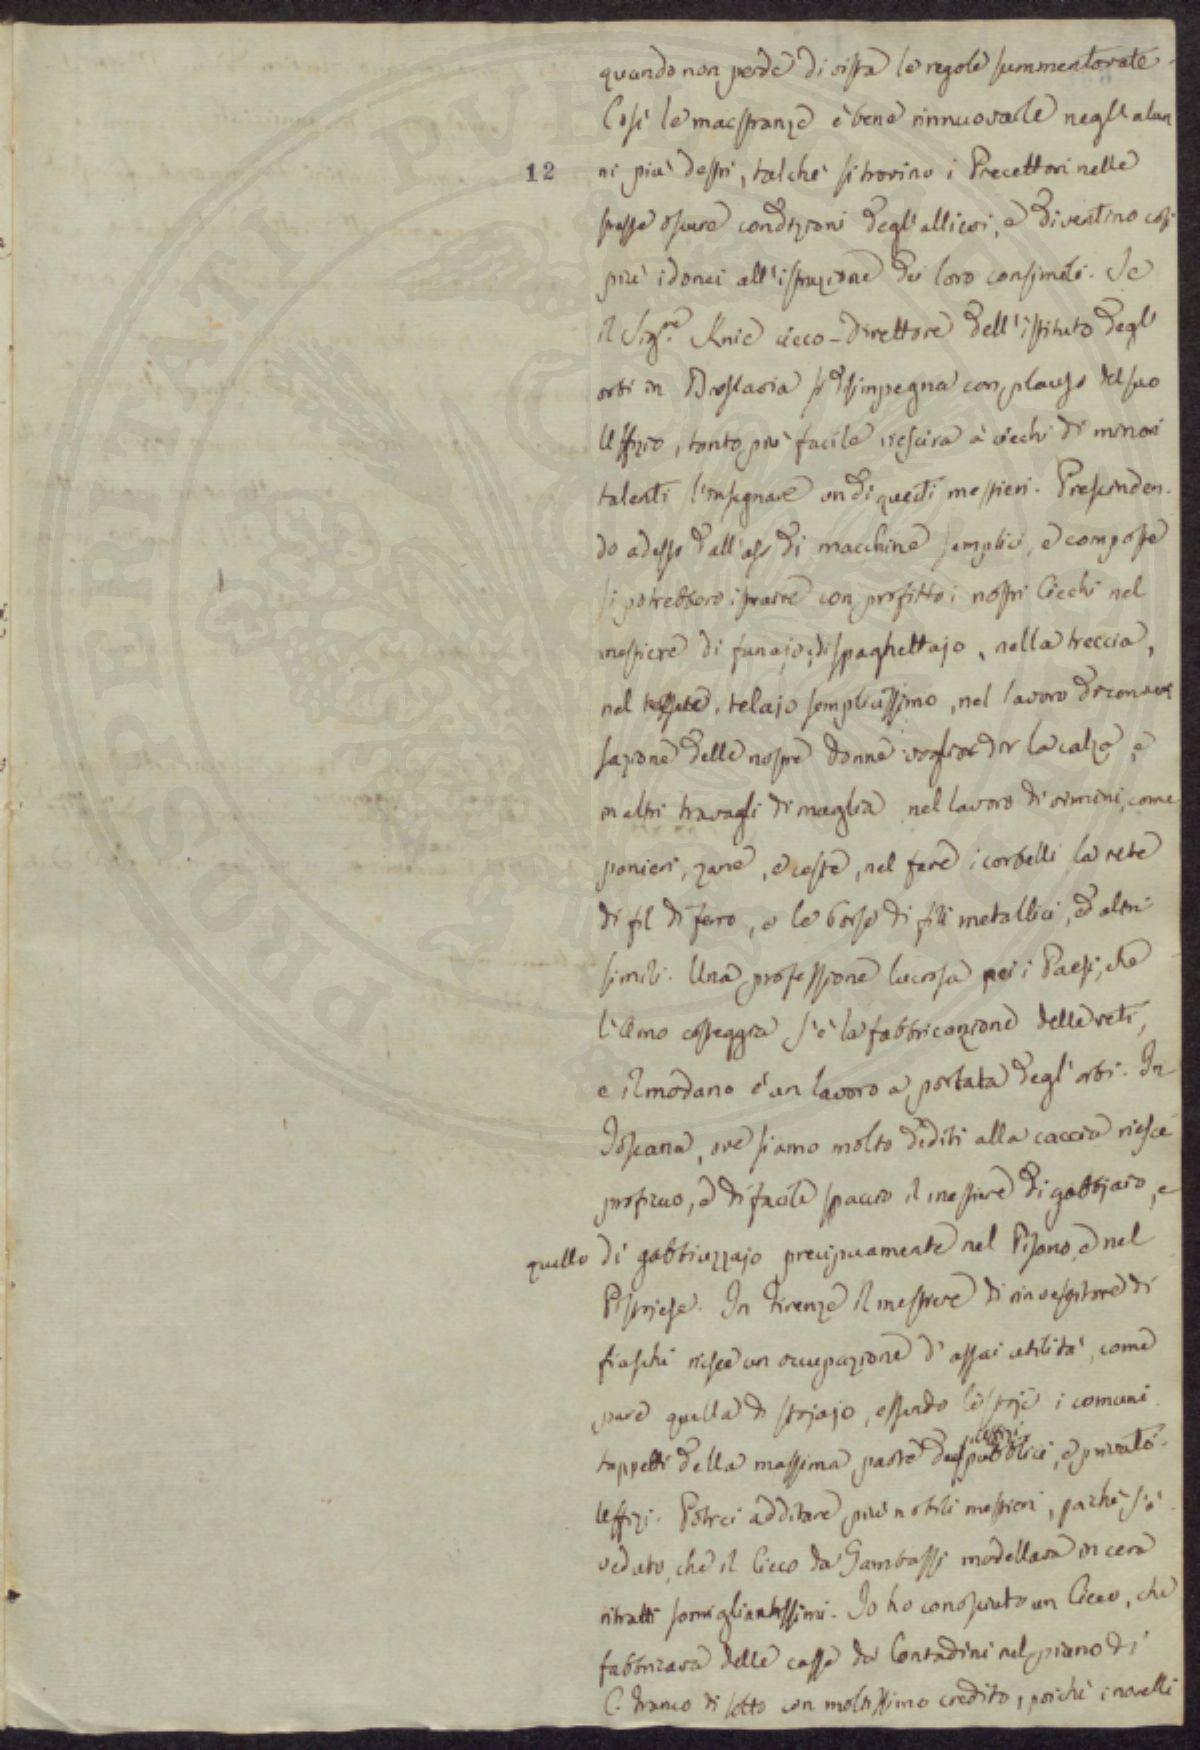 quando non perde di vista le regole summentovate.
Così le maestranze è bene rinnuovarle negl'alun
12
ni più destri, talchè si trovino i Precettori nelle
stesse oscure condizioni degl'allievi, e diventino così
più idonei all'istruzione dei loro consimili. Se
il Sig.re Knie cieco-Direttore dell'istituto degl'
orbi in Breslavia si disimpegna con plauso del suo
Uffizio, tanto più facile riescirà a ciechi di minori
talenti l'insegnare un di questi mestieri. Prescinden-
do adesso dall'uso di macchine semplici, e composte
si potrebbero istruire con profitto i nostri Ciechi nel
mestiere di funajo, di spaghettajo, nella treccia,
nel telajo semplicissimo, nel lavoro di conver
sazione delle nostre donne vogliam dir la calza, e
in altri travagli di maglia nel lavoro di vimini, come
panieri, zane, e ceste, nel fare i corbelli la rete
di fil di ferro, e le borse di fili metallici, ed altri
simili. Una professione lucrosa pei i Paesi, che
l'Arno costeggia s'è la fabbricazione delle reti,
e il modano è un lavoro a portata degl'orbi. In
Toscana, ove siamo molto dediti alla caccia riesce
proficuo, e di facile spaccio il mestiere di gabbjajo, e
quello di gabbiuzzajo precipuamente nel Pisano, e nel
Pistojese. In Firenze il mestiere di rinvestitore di
fiaschi riesce un occupazione d'assai utilità, come
pure quella di stojajo, essendo le stoje i comuni
tappeti della massima parte dei pubblici, e privati
Uffizi. Potrei additare più nobili mestieri, poichè s'è
veduto, che il Cieco da Gambassi modellava in cera
ritratti somigliantissimi. Io ho conosciuto un Cieco, che
fabbricava delle casse da Contadini nel piano di
C. Franco di sotto con moltissimo credito, poichè i novelli